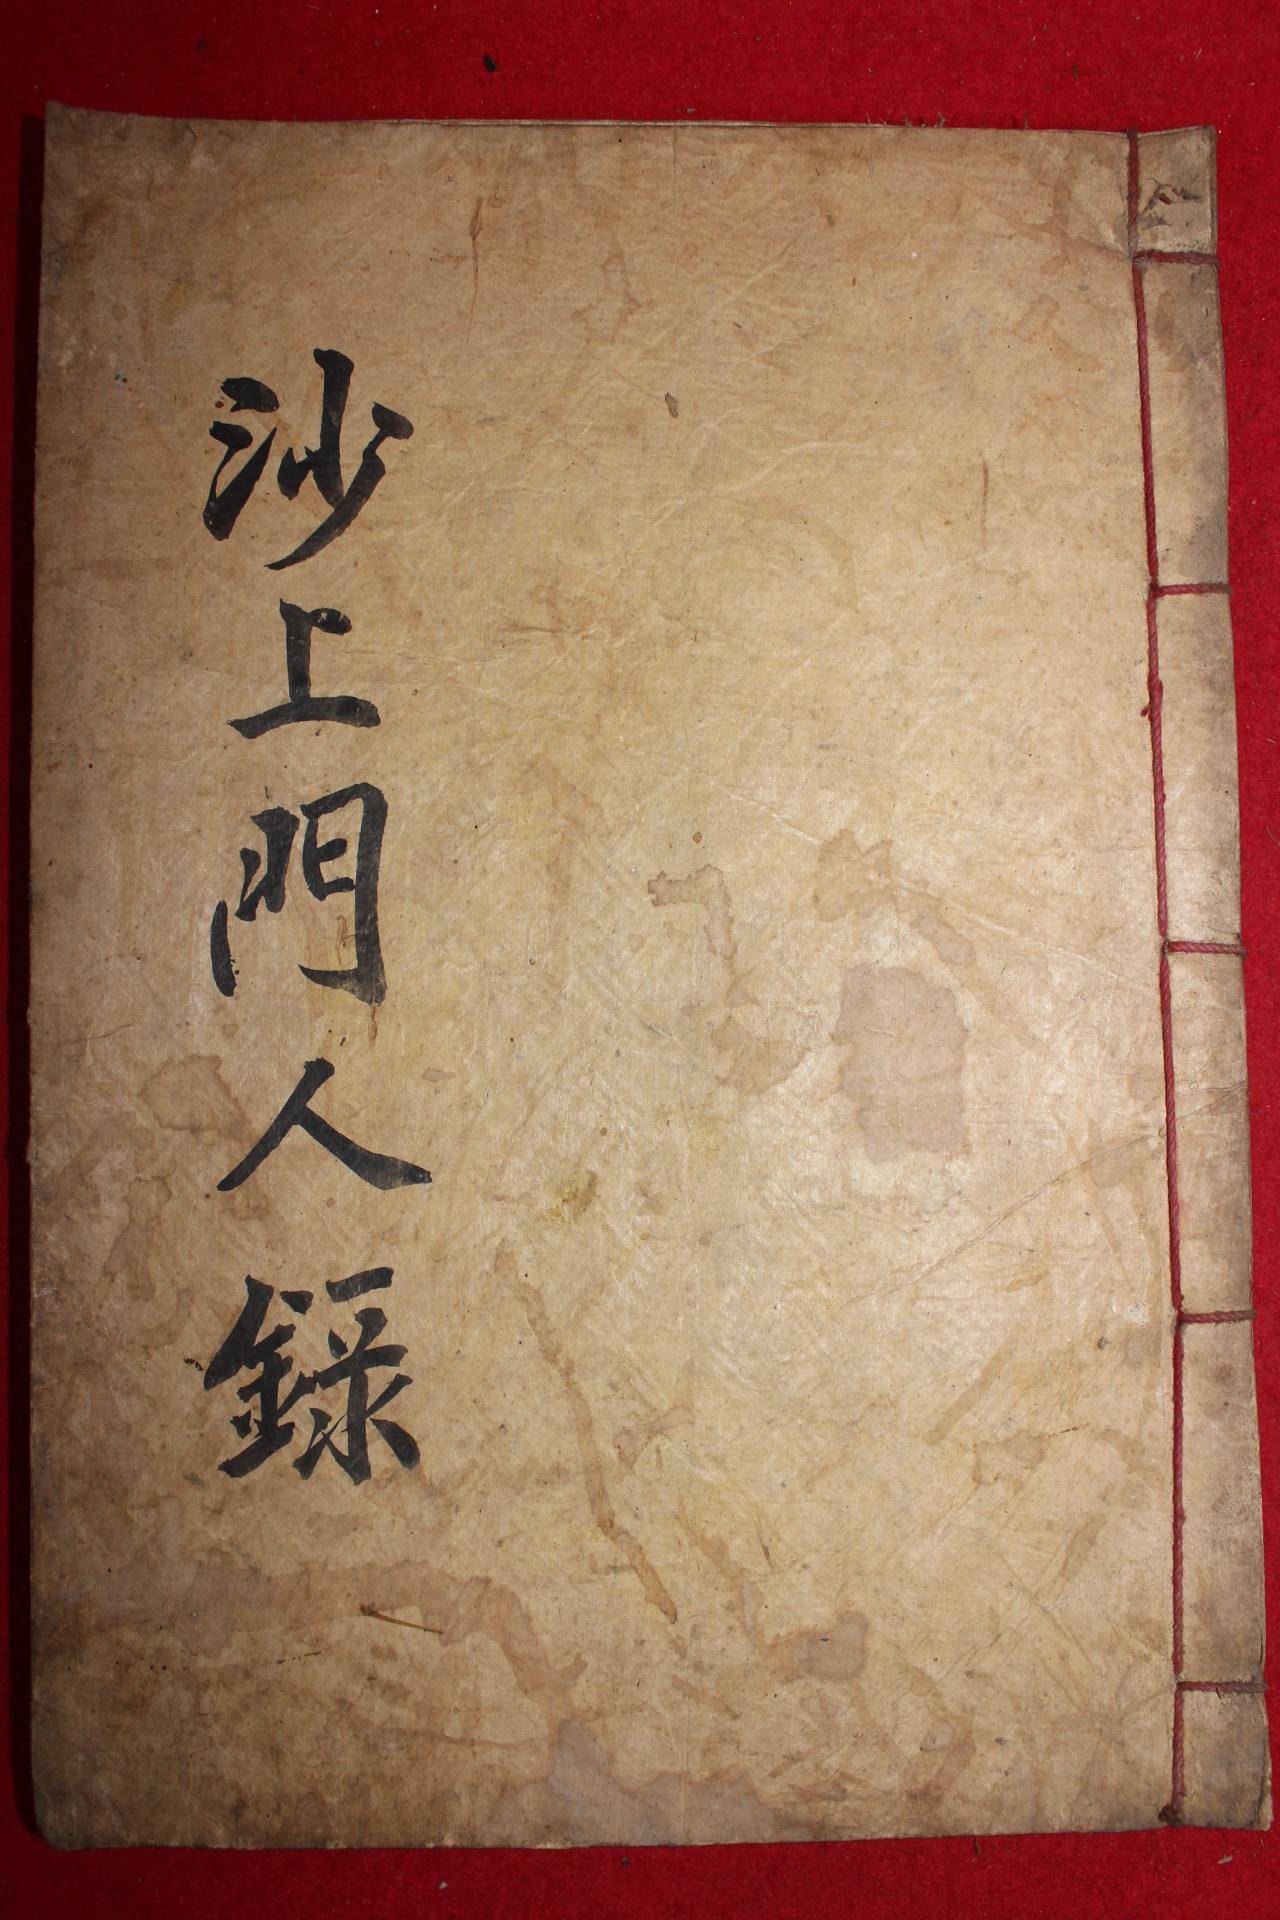 沙上門人錄